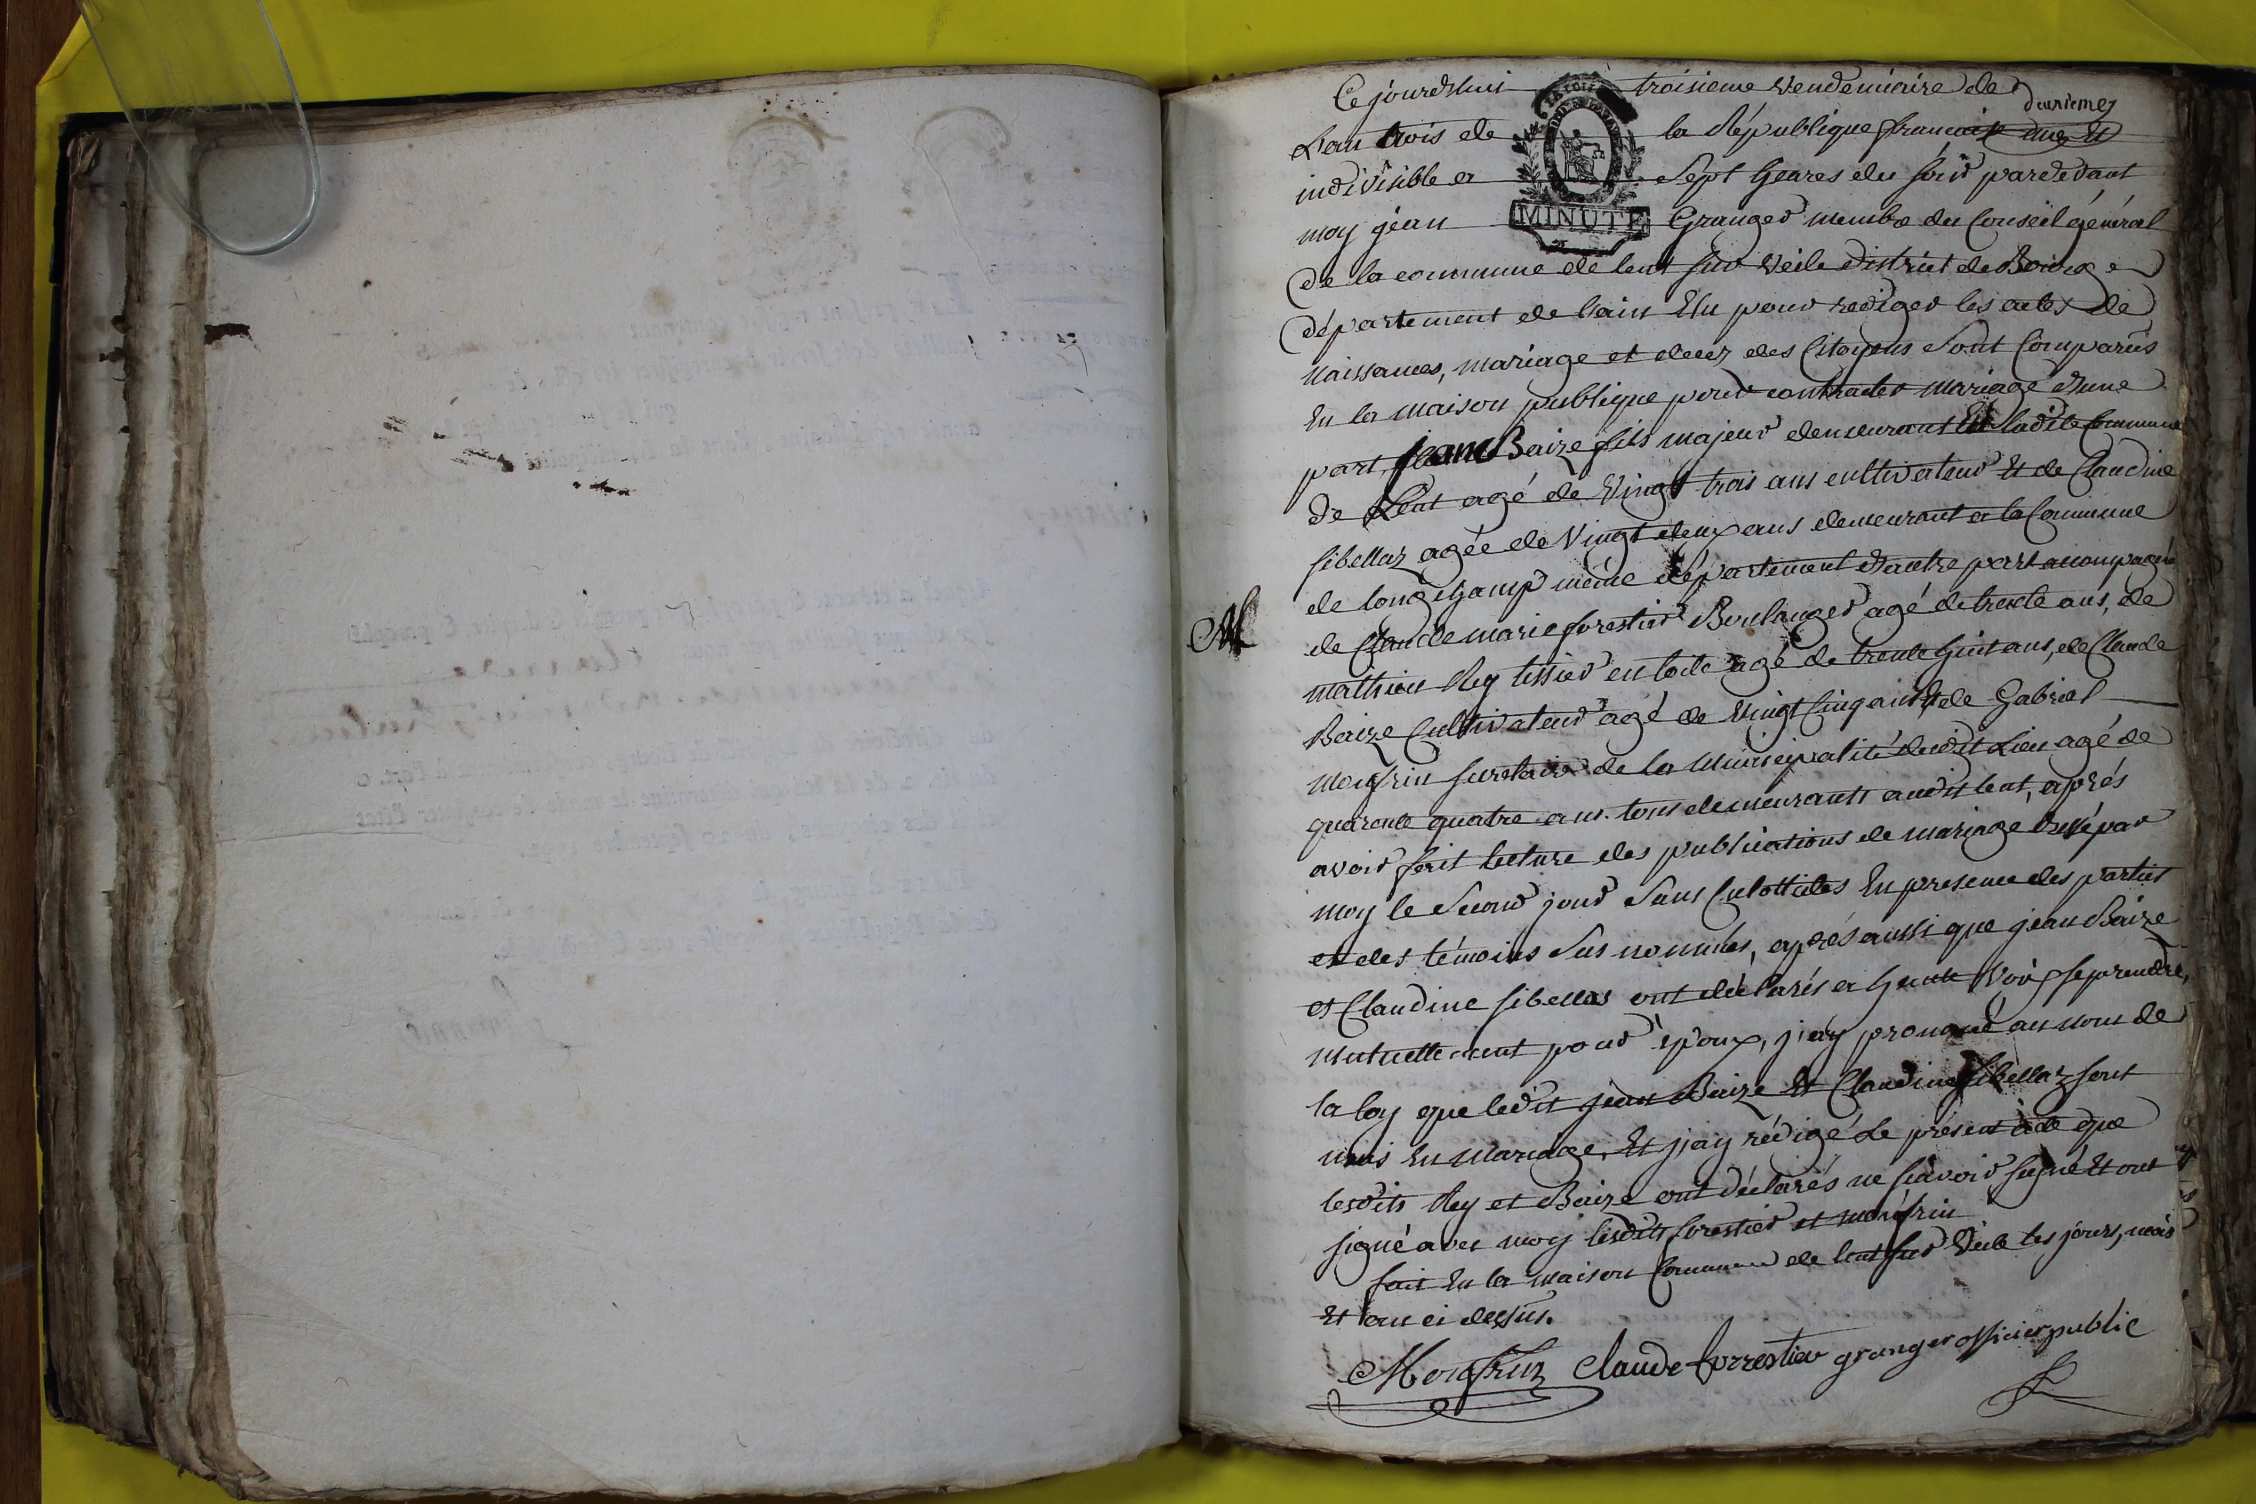 Ce jourdhui troisieme vendemiaire de
deuxieme
L'an trois de la République francaise une Et
indivisible a Sept heures du soir pardedant
MINUTE
moy jéan Granger membre du Conseil général
de la commune de lent sur veile district de Bourg
département de l'ain Elu pour rediger les actes de
Naissances, mariage et decez des Citoyens sont Comparus
En la maison publique pour contracter mariage d'une
part, jean Baize fils majeur demeurant En ladite Commune
de Lent agé de Vingt trois ans cultivateur Et de Claudine
sibellas agée de Vingt deux ans demeurant a la Commune
de longchamp même département d'autre part acompagné
M
de Claude marie forestier Boulanger agé de trente ans, de
mathieu Rey tissier en toile agé de trente huit ans, de Claude
Baize Cultivateur agé de Vingt Cinq ans Et de Gabriel
Monfrin secretaire de la Municipalité dudit Lieu agé de
quarente quatre ans. tous demeurants audit lent, aprés
avoir fait lecture des publications de mariage dressé par
moy le Second jour Sans Culottides En presence des parties
et des témoins Sus nommés, aprés aussi que jean Baize
et Claudine sibellas ont déclarés a haute Voix se prendre,
Mutuellement pour époux, j'ay pronocé au nom de
la loy que ledit jean Baize Et Claudine sibellaz sont
unis En mariage, Et j'ay rédigé Le présent acte que
lesdits Rey et Baize ont déclarés ne sçavoir signé Et ont
signé avec moy lesdits forestier et monfrin
fait En la maison Commune de lent sur Veile les jours, mois
Et an ci dessus.
Monfrin Claude forrestier granger officier public